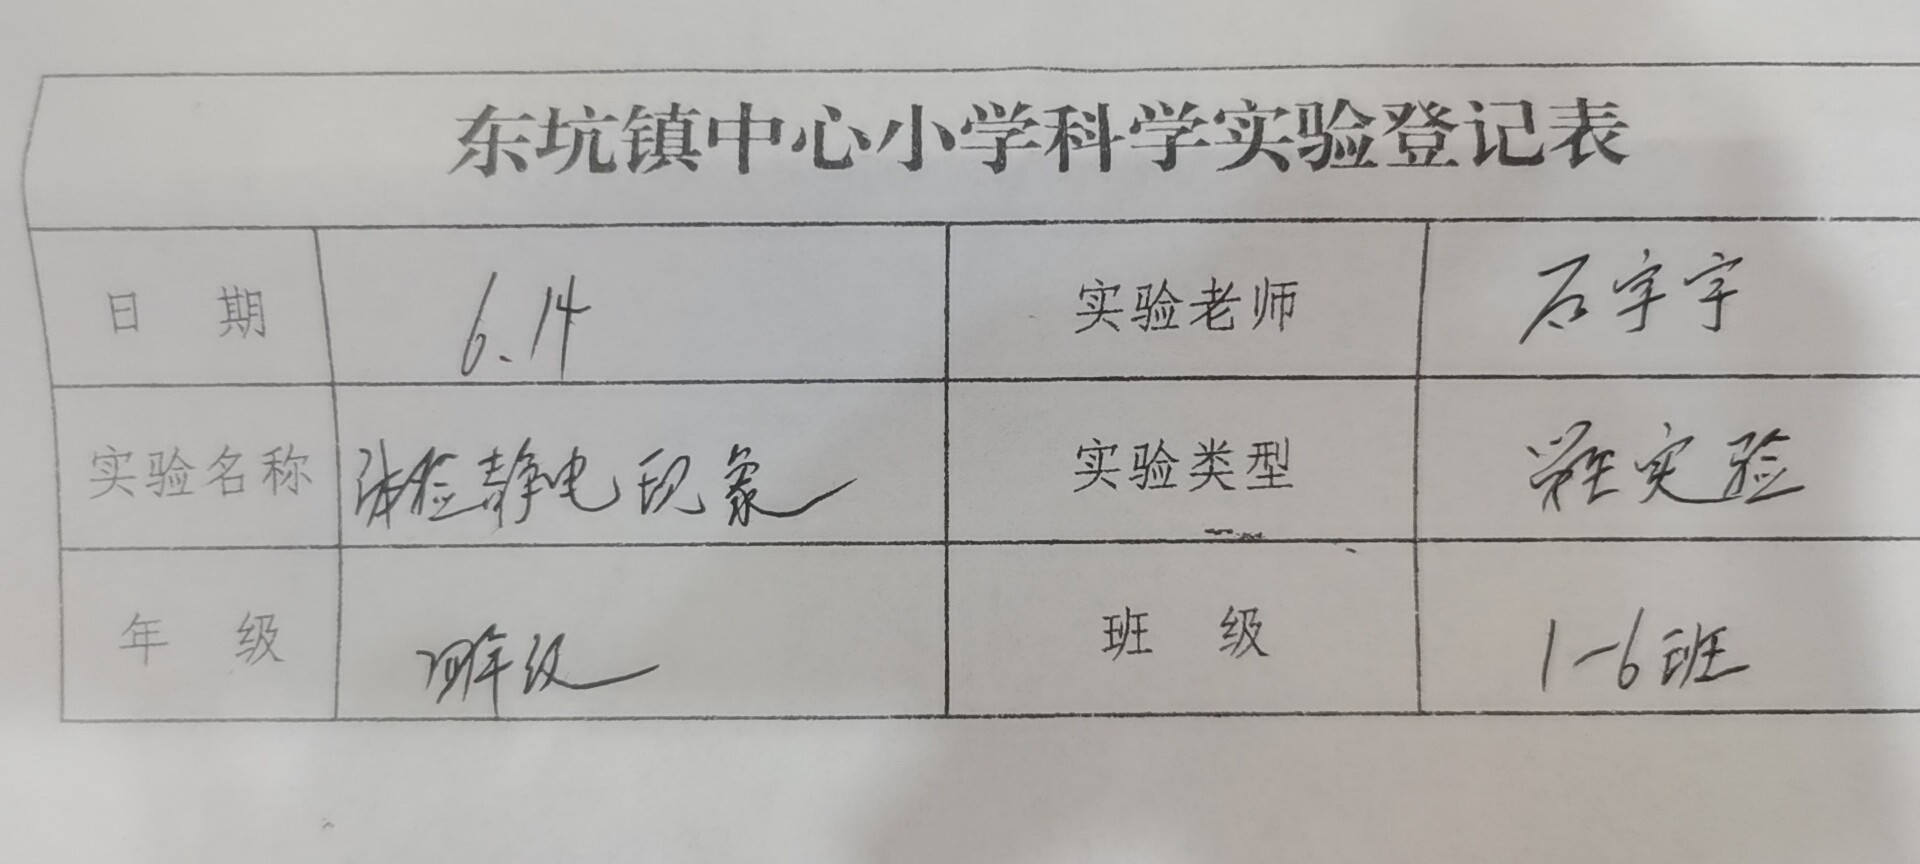 东坑镇中心小学科学实验登记表
日 期 6.14 实验老师 石宇宇
实验名称 体验静电现象 实验类型 学生实验
年 级 四年级 班 级 1-6班